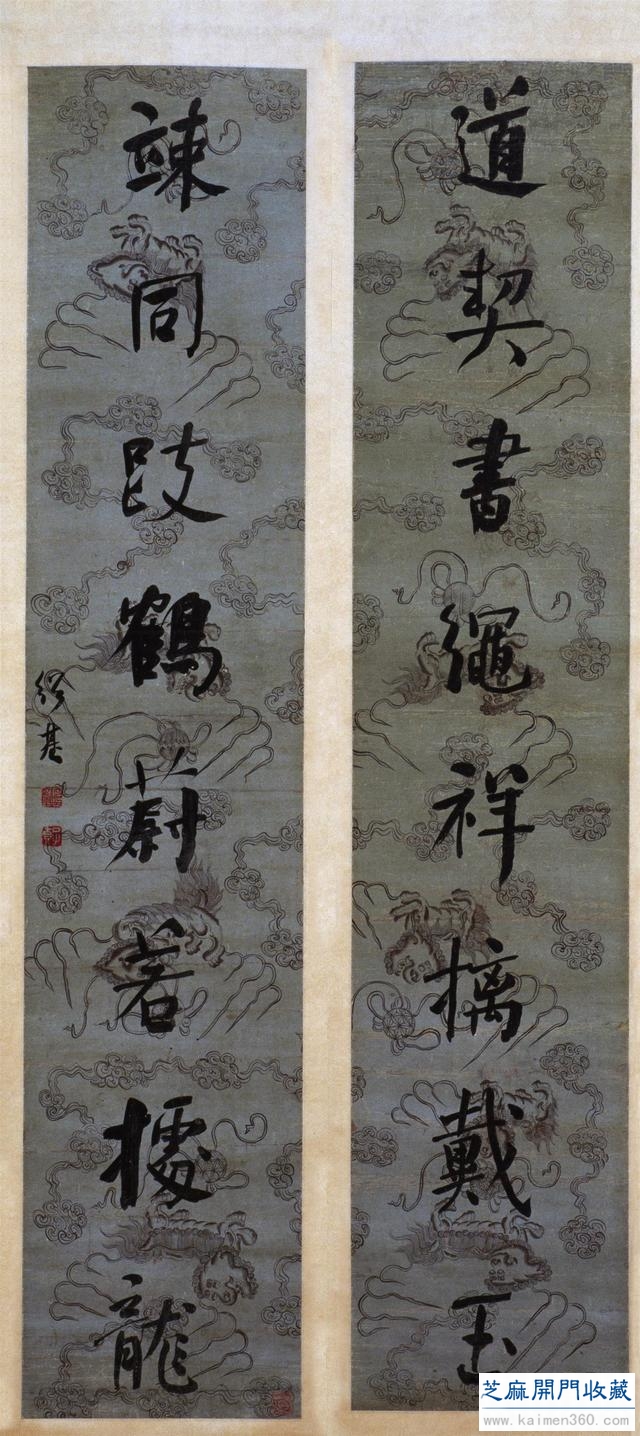 道契書繩祥摛戴玉
竦同跂鶴蔚若據龍
基
芝麻開門收藏
www.kaimen360.com